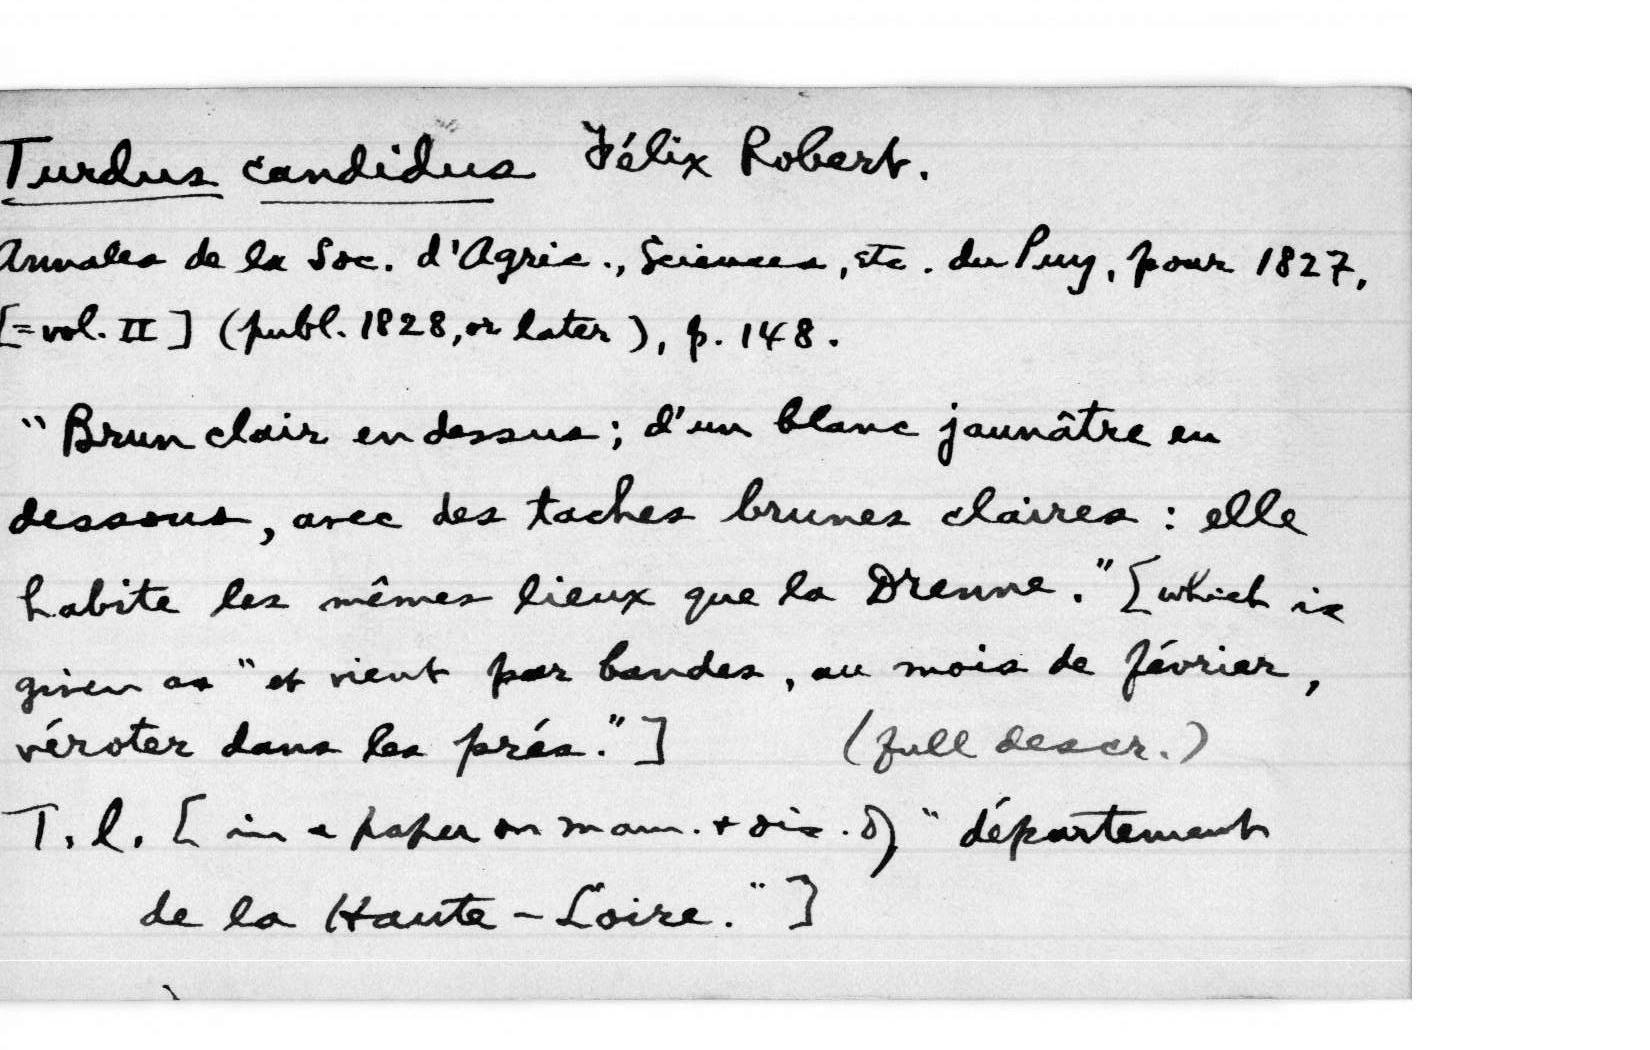 Turdus candidus Félix Robert.
Annales de la Soc. d'Agric., Sciences, etc. du Puy, pour 1827,
[=vol. II] (publ. 1828, or later), p. 148.
"Brun clair en dessus; d'un blanc jaunâtre en
dessous, avec des taches brunes claires : elle
habite les mêmes lieux que la Drenne." [which is
given as "et vient par bandes, au mois de février,
véroter dans les prés."] (full descr.)
T. l. [in a paper on mam. + ois. of) "département
de la Haute-Loire."]